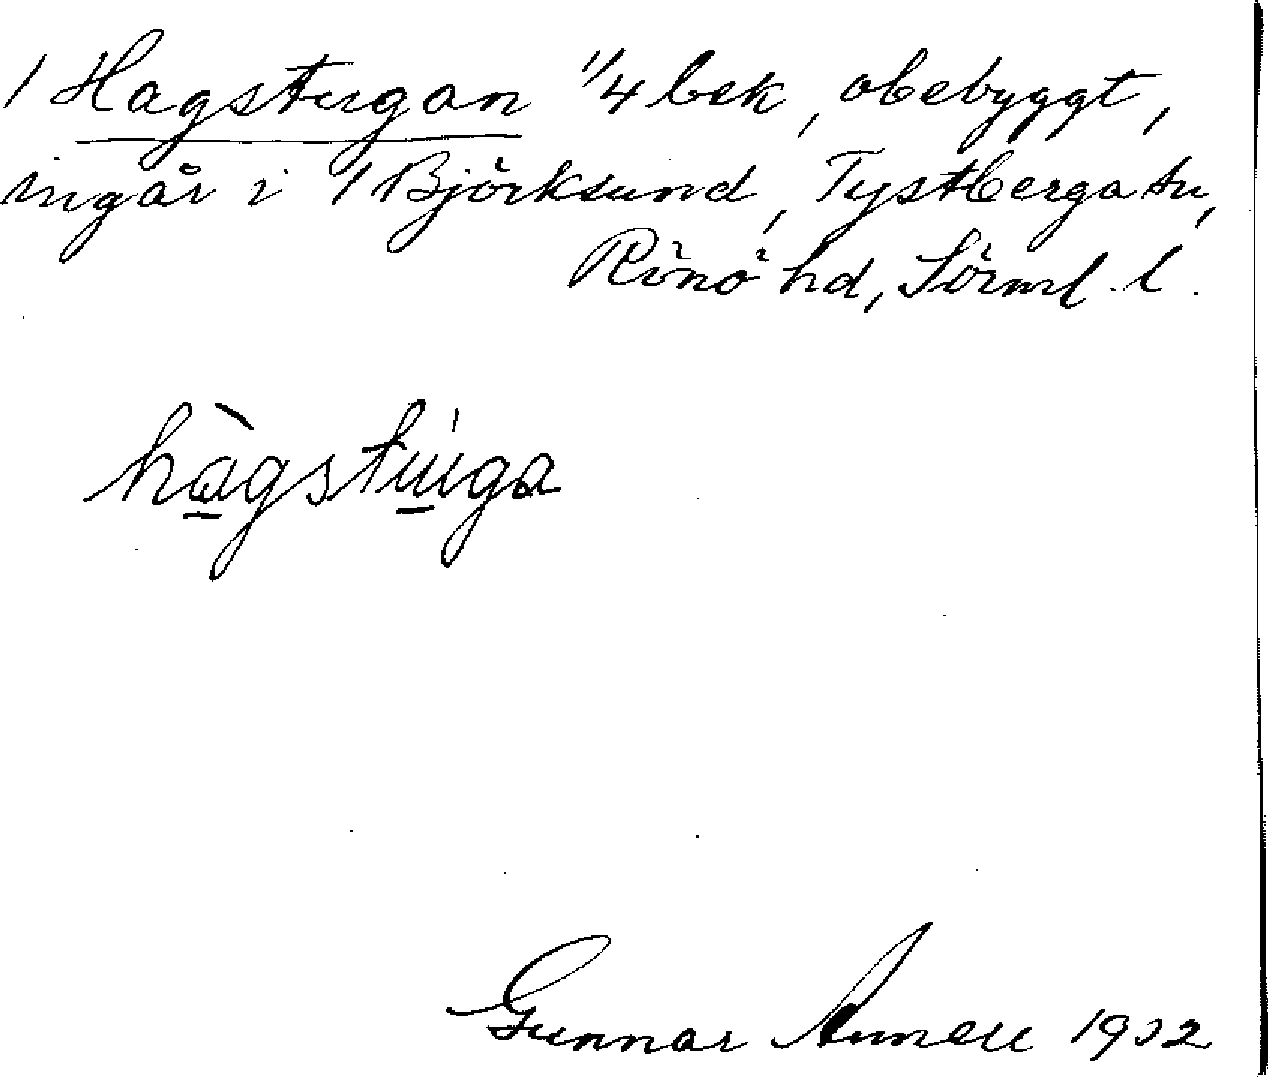 1 Hagstugan 1/4 bek, obebyggt,
ingår i 1 Björksund, Tystberga sn,
Rönö hd, Sörml. l.
hàgstúga
Gunnar Annell 1932